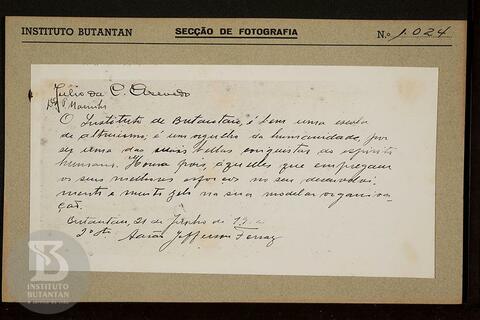 INSTITUTO BUTANTAN
SECÇÃO DE FOTOGRAFIA
N.º 1.024
Julio da C. Azevedo
O Instituto de Butantan, é bem uma escola
de altruismo; é um orgulho da humanidade, por
ser uma das mais bellas conquistas do espirito
humano. Honra pois, aquelles que empregam
os seus melhores esforços no seu desenvolvi-
mento e muito zelo na sua modelar organisa-
ção.
Butantan, 21 de Junho de
Aarão Jefferson Ferraz
INSTITUTO
BUTANTAN